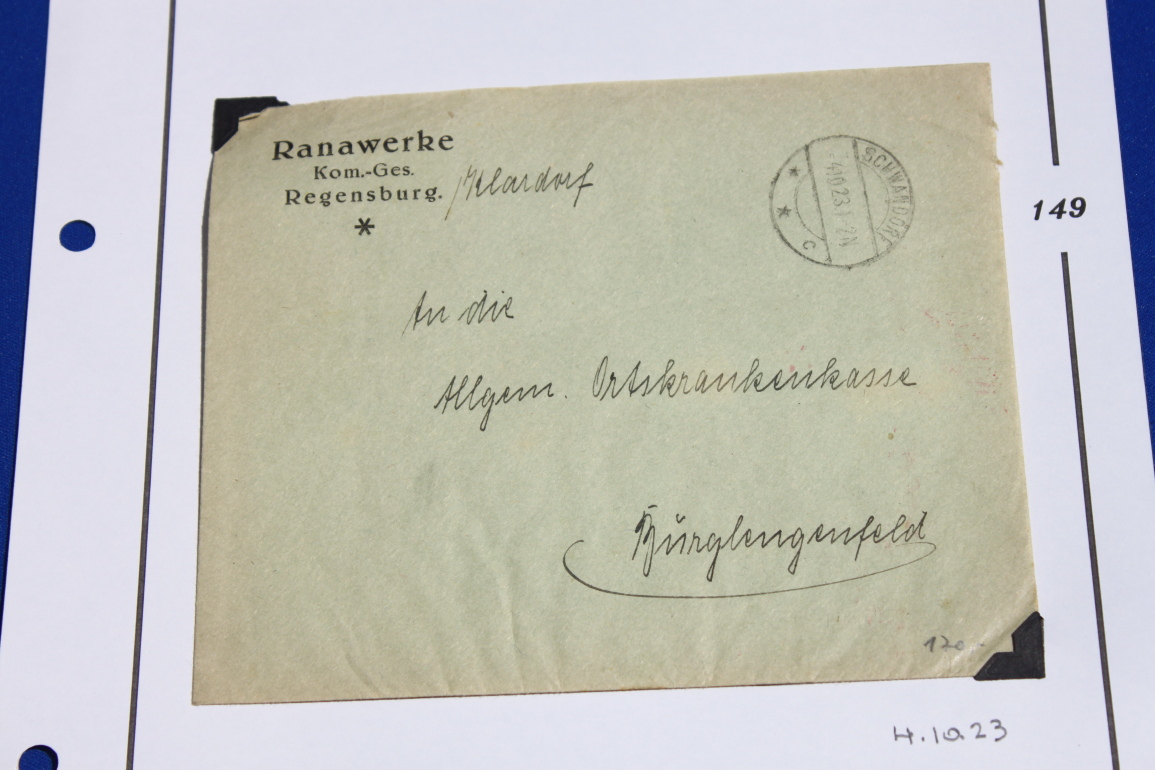 Ranawerke
Kom.-Ges.
Regensburg. /Klardorf
*
SCHWANDORF
4.10.23.1-2N
* * c
149
An die
Allgem. Ortskrankenkasse
Burglengenfeld
120.-
4.10.23